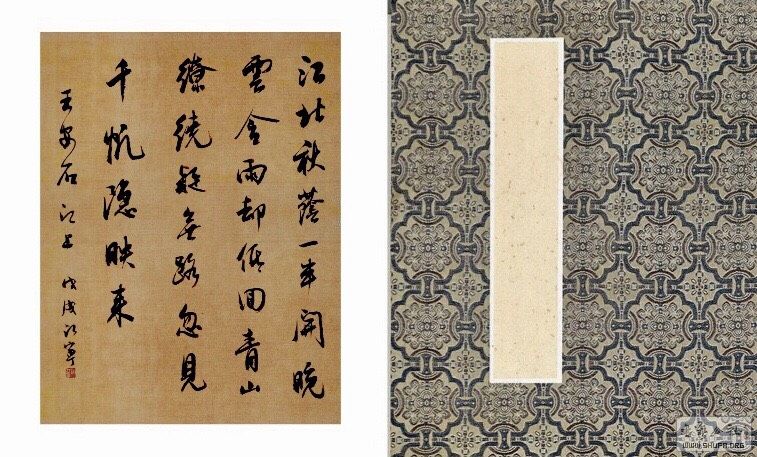 江北秋蔭一半開晚
雲含雨却低回青山
繚繞疑無路忽見
千帆隐映来
王安石江上戊戌
WWW.SHUFA.ORG